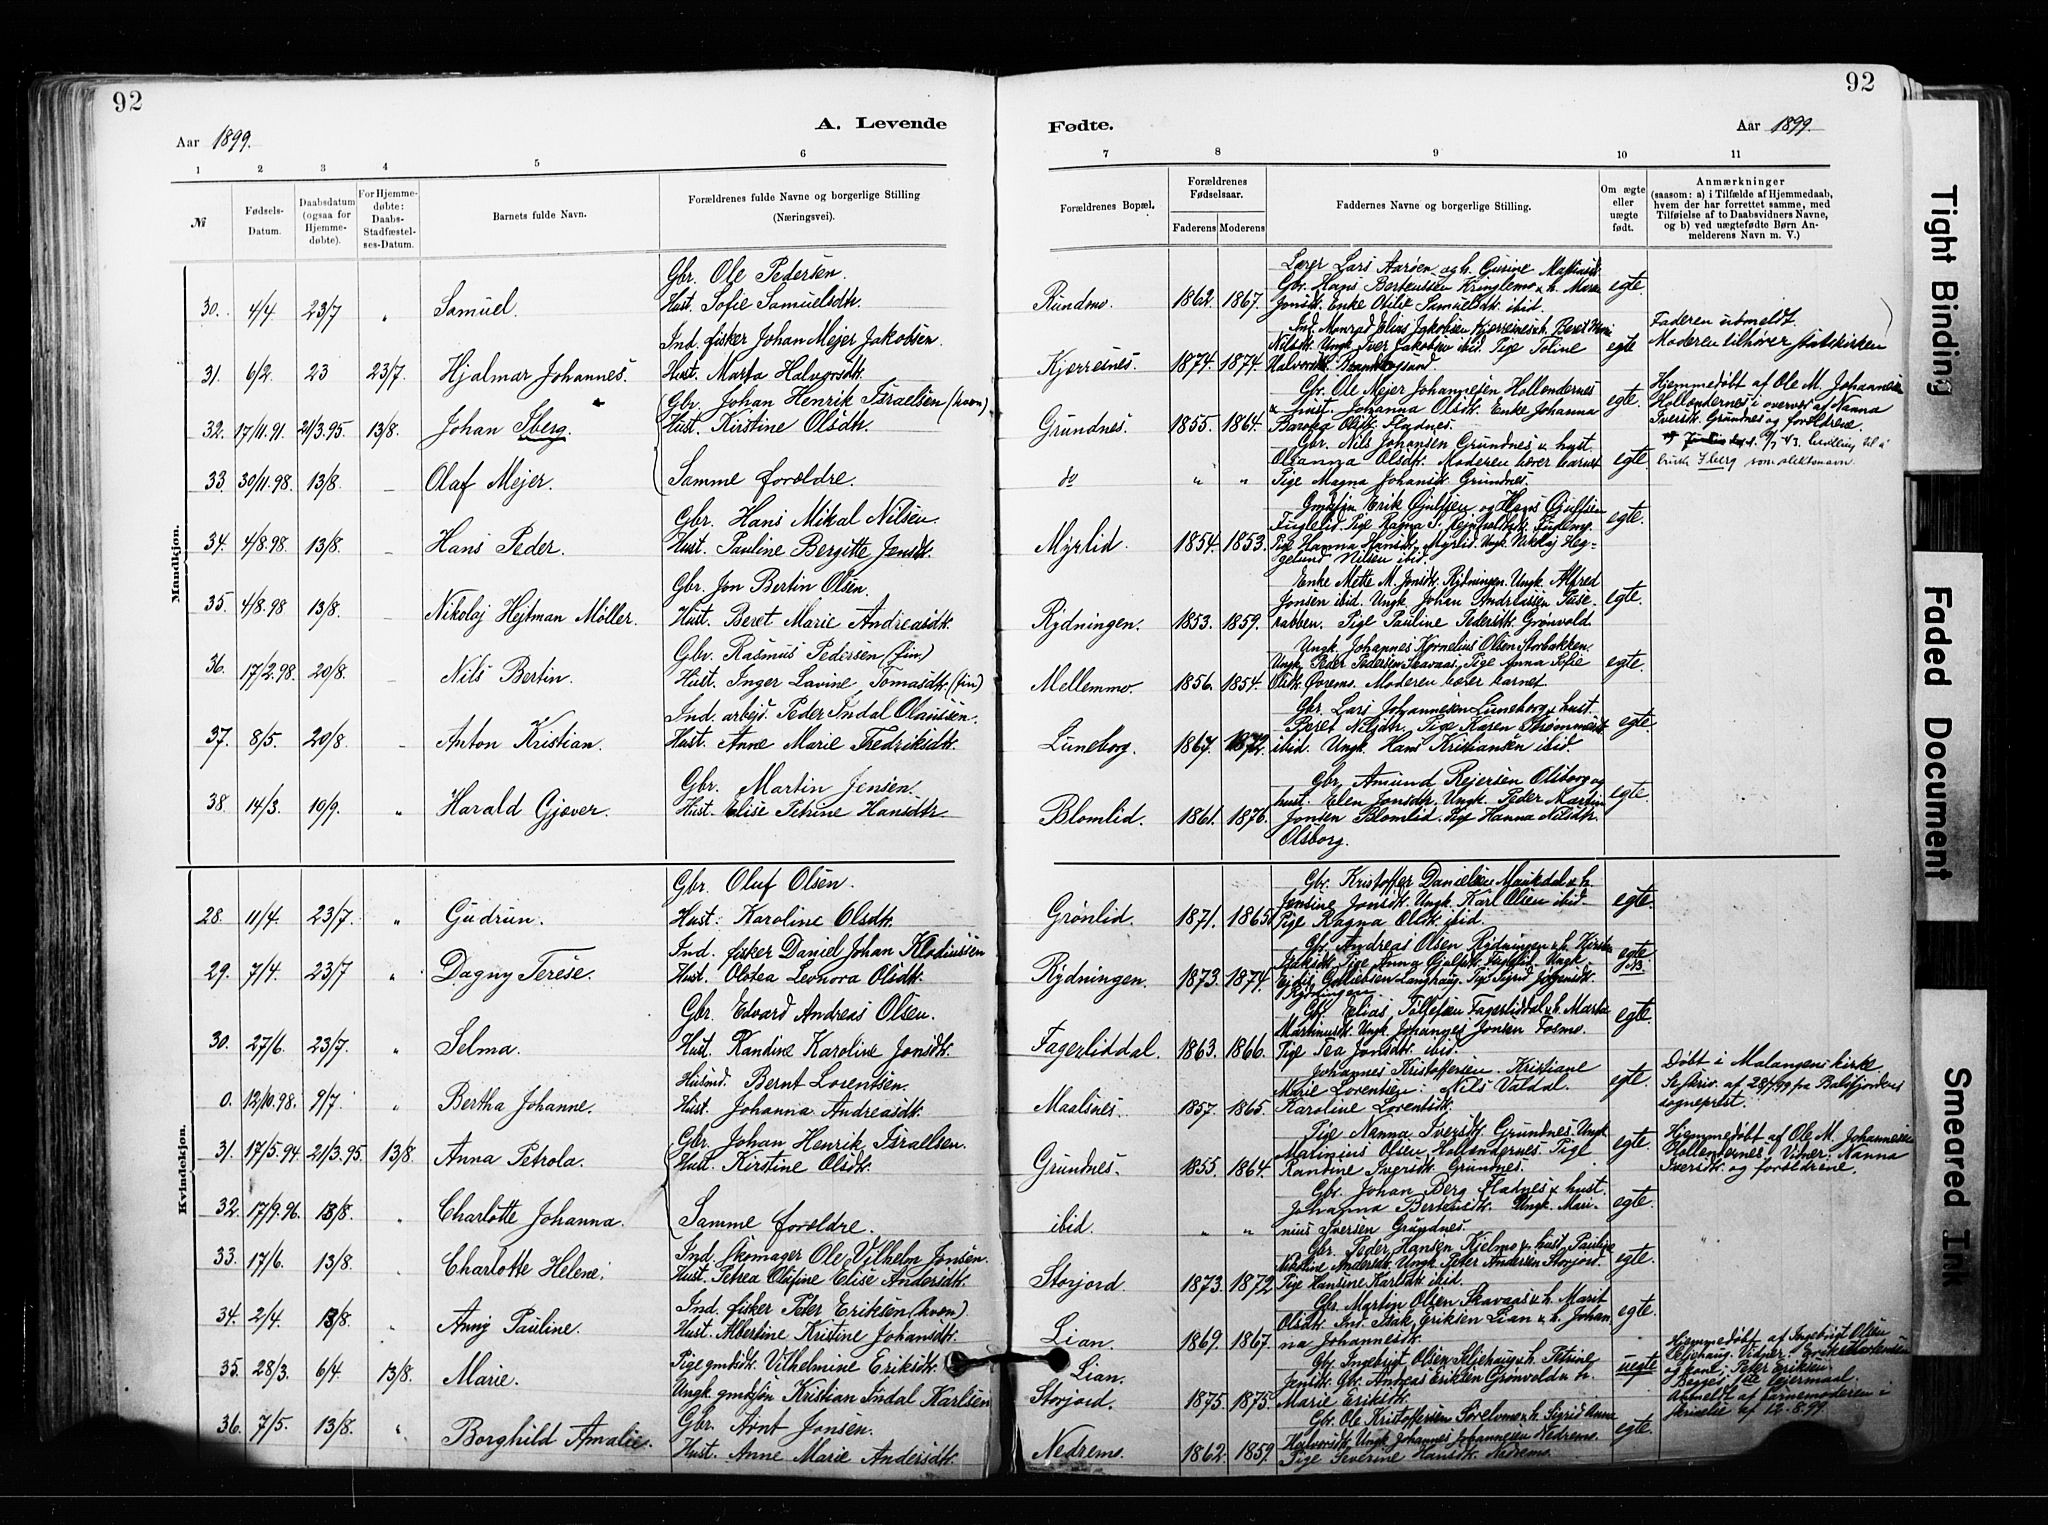 92
92
Aar 1899.
A. Levende
Fødte.
Aar 1899.
1 2 3 4 5 6 7 8 9 10 11
№
Fødsels-Datum.
Daabsdatum (ogsaa for Hjemme-døbte).
For Hjemme-døbte: Daabs-Stadfæstel-ses-Datum.
Barnets fulde Navn.
Forældrenes fulde Navne og borgerlige Stilling (Næringsvei).
Forældrenes Bopæl.
Forældrenes Fødselsaar.
Faderens Moderens
Faddernes Navne og borgerlige Stilling.
Om ægte eller uægte født.
Anmærkninger
(saasom: a) i Tilfælde af Hjemmedaab, hvem der har forrettet samme, med Tilføielse af to Daabsvidners Navne, og b) ved uægtefødte Børn An-melderens Navn m. V.)
Mandkjøn.
30. 4/4 23/7 " Samuel.
Gbr. Ole Pedersen.
Hust. Sofie Samuelsdtr.
Rundmo. 1862. 1867.
Lærer Lars Aarøen og h. Gurine
Jonsdtr. Enke Otilie Samuelsdtr. ibid.
egte.
31. 6/2. 23 23/7. Hjalmar Johannes.
Ind. fisker Johan Mejer Jakobsen.
Hust. Marta Halvorsdtr.
Kjerresnes. 1874. 1874.
Nilsdtr. Ungk. Iver Jakobsen ibid. Pige Toline
egte
Faderen udmeldt.
Moderen tilhører statskirken
32. 17/11.91. 21/3.95 13/8. Johan Isberg.
Gbr. Johan Henrik Israelsen (kvæn)
Hust. Kirstine Olsdtr.
Grundnes. 1855. 1864.
Gbr. Ole Mejer Johannesen Hollendernes
& hust. Johanna Olsdtr. Enke Johanna
egte.
Hjemmedøbt af Ole M. Johannesen
Hollendernes i overvær af Nanna
Iversdtr. Grundnes og forældrene.
33. 30/11.98. 13/8. – Olaf Mejer.
Samme forældre.
do " "
Gbr. Nils Johansen Grundnes & hust.
Olianna Olsdtr. Moderen bærer barnet
Pige Magna Johansdtr. Grundnes.
egte
34. 4/8.98 13/8. – Hans Peder.
Gbr. Hans Mikal Nilsen.
Hust. Pauline Bergitte Jensdtr.
Myrlid. 1854. 1853.
Pige Hanna Hansdtr. Myrlid. Ungk. Nikolaj Heg-
gelund Nilsen ibid.
egte.
35. 4/8.98 13/8. – Nikolaj Hejtman Møller.
Gbr. Jon Bertin Olsen.
Hust. Beret Marie Andreasdtr.
Rydningen. 1853. 1859.
Enke Mette M. Jonsdtr. Rydningen. Ungk. Alfred
Jonsen ibid. Ungk. Johan Andreassen Pase-
rabben. Pige Pauline Pedersdtr. Grønvold
egte.
36. 17/2.98. 20/8. – Nils Bertin.
Gbr. Rasmus Pedersen (fin)
Hust. Inger Lavine Tomasdtr. (fin)
Mellemmo. 1856. 1854.
Ungk. Johannes Kornelius Olsen Storbakken.
Ungk. Peder Pedersen Skavaas, Pige Anna Sofie
Olsdtr. Øvremo. Moderen bærer barnet.
egte.
37. 8/5. 20/8. – Anton Kristian.
Ind. arbejd. Peder Indal Olaussen.
Hust. Anne Marie Fredriksdtr.
Luneborg. 1867. 1872.
Gbr. Lars Johannesen Luneborg & hust.
Beret Nilsdtr. Pige Karen
ibid. Ungk. Hans Kristiansen ibid.
egte.
38. 14/3. 10/9. " Harald Gjæver.
Gbr. Martin Jensen.
Hust. Elise Petrine Hansdtr.
Blomlid. 1861. 1876.
Gbr. Amund Rejersen Olsborg og
hust. Elen Jonsdtr. Ungk. Peder Martin
Jonsen Blomlid. Pige Hanna Nilsdtr.
Olsborg.
egte.
Kvindekjøn.
28. 11/4. 23/7. " Gudrun.
Gbr. Oluf Olsen.
Hust. Karoline Olsdtr.
Grønlid. 1871. 1865.
Gbr. Kristoffer Danielsen Maukdal & h.
Jensine Jonsdtr. Ungk. Karl Olsen ibid
Pige Ragna Olsdtr. ibid.
egte.
29. 7/4. 23/7 " Dagny Terese.
Ind. fisker Daniel Johan Klodiussen
Hust. Olotea Leonora Olsdtr.
Rydningen. 1873. 1874.
Gbr. Andreas Olsen Rydningen & h. Kirsten
Rydningen
egte
NB.
30. 27/6. 23/7. " Selma.
Gbr. Edvard Andreas Olsen.
Hust. Randine Karoline Jonsdtr.
Fagerliddal. 1863. 1866.
Gbr. Elias Tollefsen Fagerliddal & h. Marta
Martinusdtr. Ungk. Johannes Jonsen Fosmo.
Pige Tea Jonsdtr. ibid.
egte.
0. 12/10.98. 9/7. " Bertha Johanne.
Husmd. Bernt Lorentsen.
Hust. Johanna Andreasdtr.
Maalsnes. 1857. 1865.
Johannes Kristoffersen. Kristiane
Marie Lorentsen. Nils Valdal.
Karoline Lorentsdtr.
egte.
Døbt i Malangens kirke.
Se skriv. af 28/7 99 fra Balsfjordens
sogneprest.
31. 17/5.94 21/3.95. 13/8. Anna Petrola.
Gbr. Johan Henrik Israelsen.
Hust. Kirstine Olsdtr.
Grundnes. 1855. 1864.
Pige Nanna Iversdtr. Grundnes. Ungk.
Marinius Olsen Hollendernes. Pige
Randine Iversdtr. Grundnes.
egte.
Hjemmedøbt af Ole M. Johannesen
Hollendernes. Vidner: Nanna
Iversdtr. og forældrene.
32. 17/9.96. 13/8. " Charlotte Johanna.
Samme forældre.
ibid. " "
Gbr. Johan Berg Fladnes & hust.
Johanna Berntsdtr. Ungk. Mari-
nius Iversen Grundnes.
egte.
33. 17/6. 13/8. Charlotte Helene.
Ind. skomager Ole Vilhelm Jonsen.
Hust. Petrea Olufine Elise Andersdtr.
Storjord. 1873. 1872
Gbr. Peder Hansen Kjelmo & hust. Pauline
Nikoline Andersdtr. Ungk. Peter Andersen Storjord.
Pige Hansine Karlsdtr. ibid.
egte.
34. 2/4. 13/8. " Anny Pauline.
Ind. fisker Peter Eriksen (kvæn)
Hust. Albertine Kristine Johansdtr.
Lian. 1869. 1867.
Gbr. Martin Olsen Skavaas & h. Marit
Olsdtr. Ind. Isak Eriksen Lian & h. Johan
na Johannesdtr.
egte.
35. 28/3. 6/4 13/8. Marie.
Pige gmksdtr. Vilhelmine Eriksdtr.
Ungk. gmksøn Kristian Indal Karlsen
Lian.
Storjord. 1875. 1875.
Gbr. Ingebrigt Olsen Seljehaug & h. Petrine
Jensdtr. Gbr. Andreas Eriksen Grønvold & h.
Marie Eriksdtr.
uegte
Hjemmedøbt af Ingebrigt Olsen
Seljehaug. Vidner:
Begges 1ste lejermaal.
Anmeldt af barnemoderen i
skrivelse af 12-8.99.
36. 7/5. 13/8. " Borghild Amalie.
Gbr. Arnt Jonsen.
Hust. Anne Marie Andersdtr.
Nedremo. 1862. 1859.
Gbr. Ole Kristoffersen Sørelvmo & h. Sigrid Anne
Halvorsdtr. Ungk. Johannes Johannesen Nedremo.
Pige Severine Hansdtr. Nedremo.
egte.
Tight Binding
Faded Document
Smeared Ink